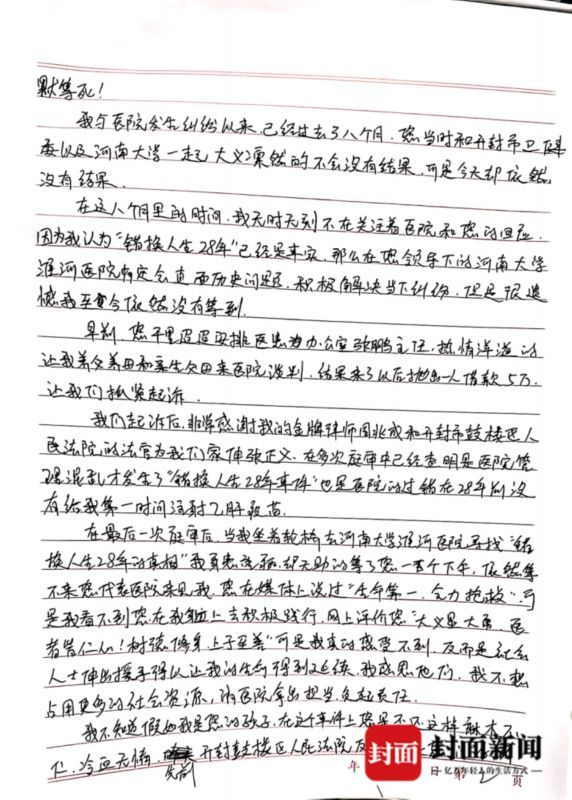 默等死！
我与医院发生纠纷以来，已经过去了八个月，您当时和开封市卫健
委以及河南大学一起大义凛然的不会没有结果，可是今天却依然
没有结果。
在这八个月里的时间，我无时无刻不在关注着医院和您的回应，
因为我认为“错换人生28年”已经是事实，那么在您领导下的河南大学
淮河医院肯定会直面历史问题，积极解决当下纠纷，但是很遗
憾我至今依然没有等到。
早前，您千里迢迢安排医患办公室张鹏主任，热情洋溢的
让我养父养母和亲生父母来医院谈判，结果来了以后抛出一人借款5万，
让我们抓紧起诉。
我们起诉后，非常感谢我的金牌律师周兆成和开封市鼓楼区人
民法院的法官为我们家伸张正义，在多次庭审中已经查明是医院管
理混乱才发生了“错换人生28年事件”也是医院的过错在28年前没
有给我第一时间注射乙肝疫苗。
在最后一次庭审后，当我坐着轮椅在河南大学淮河医院寻找“错
换人生28年的真相”我身患绝病，却无助的等了您一整个下午，依然等
不来您代表医院来见我，您在媒体上说过“生命第一，全力抢救”，可
是我看不到您在我身上去积极践行，网上评价您“大义显大勇，医
者皆仁心！树德修身，上于至善”可是我真的感受不到，反而是社会
人士伸出援手得以让我的生命得到延续，我感恩他们，我不想
占用更多的社会资源，请医院拿出担当，负起责任。
我不知道假如我是您的孩子，在这个事件上您是不还这样麻木不
仁，冷血无情，先前开封鼓楼区人民法院
年 日 第2页
封面 封面新闻
亿万年轻人的生活方式